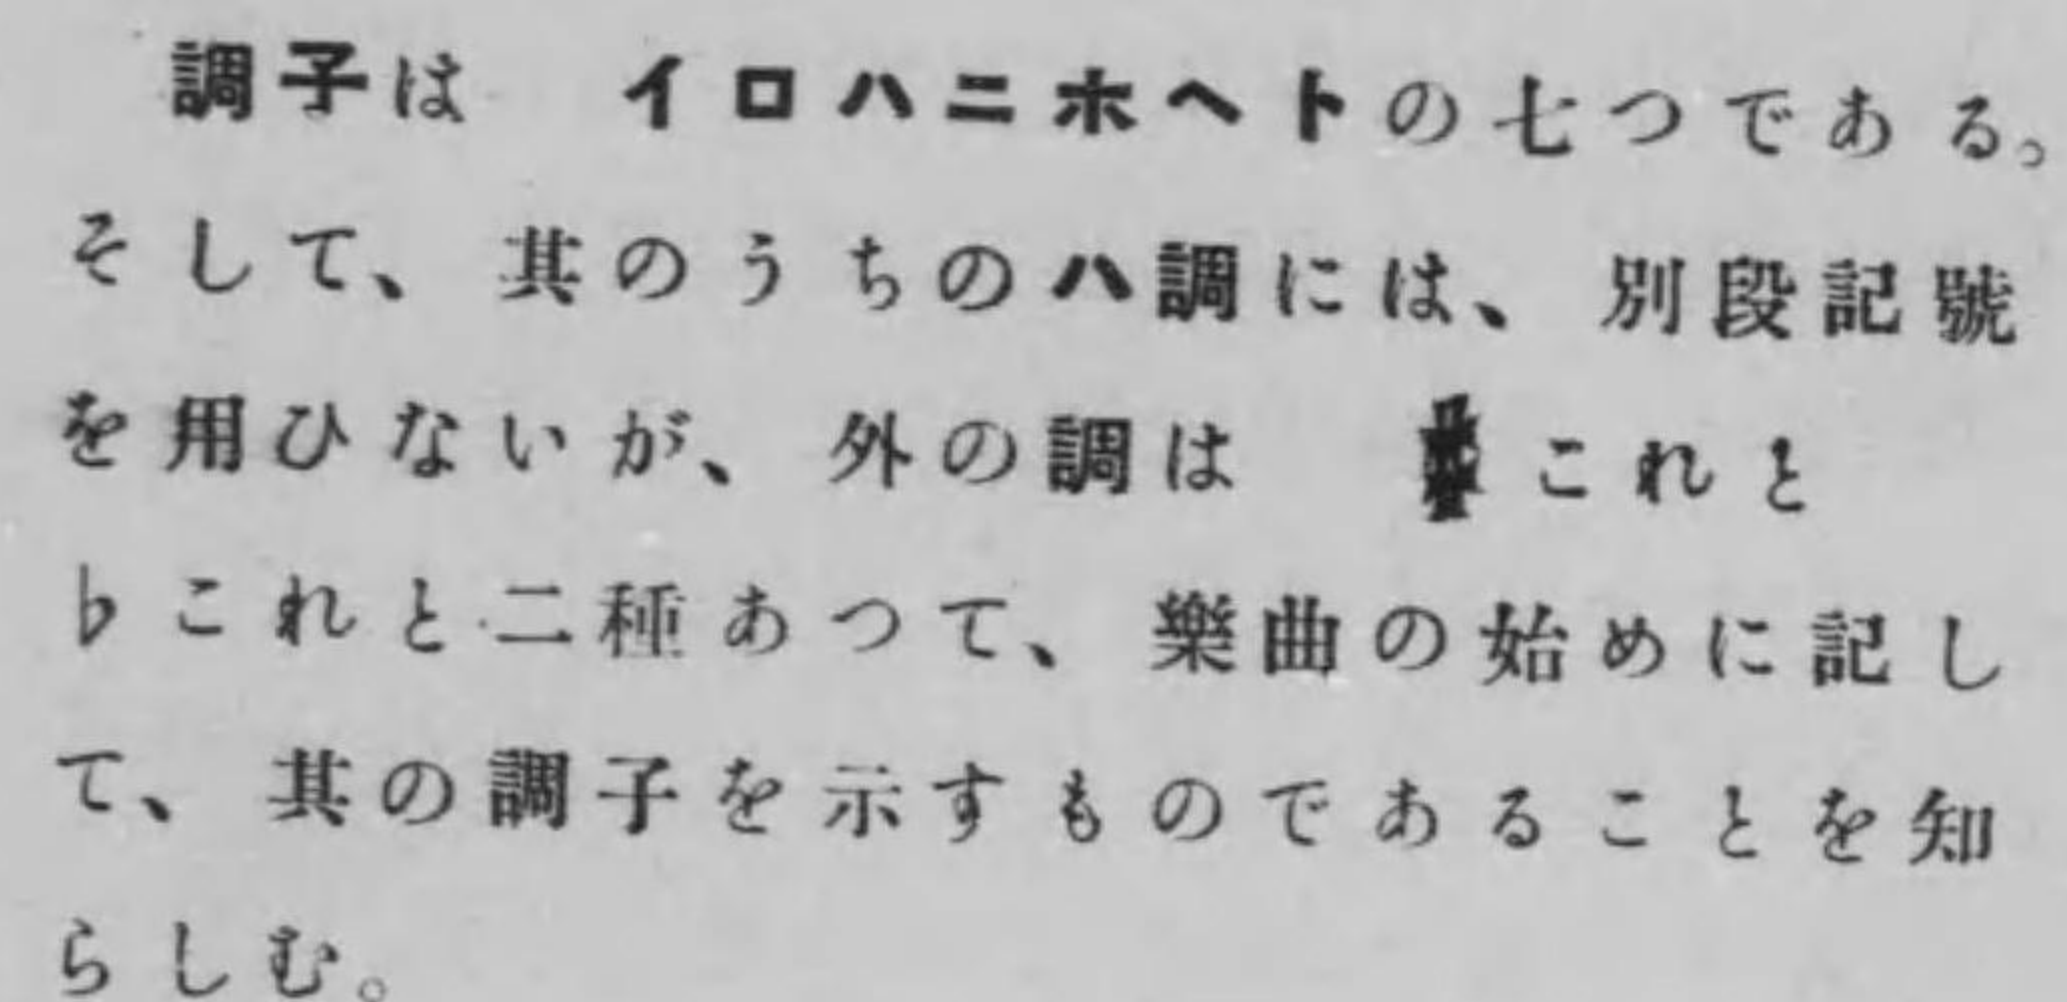 調子は　イロハニホヘトの七つである。
そして、其のうちのハ調には、別段記號
を用ひないが、外の調は　♯これと
♭これと二種あつて、樂曲の始めに記し
て、其の調子を示すものであることを知
らしむ。